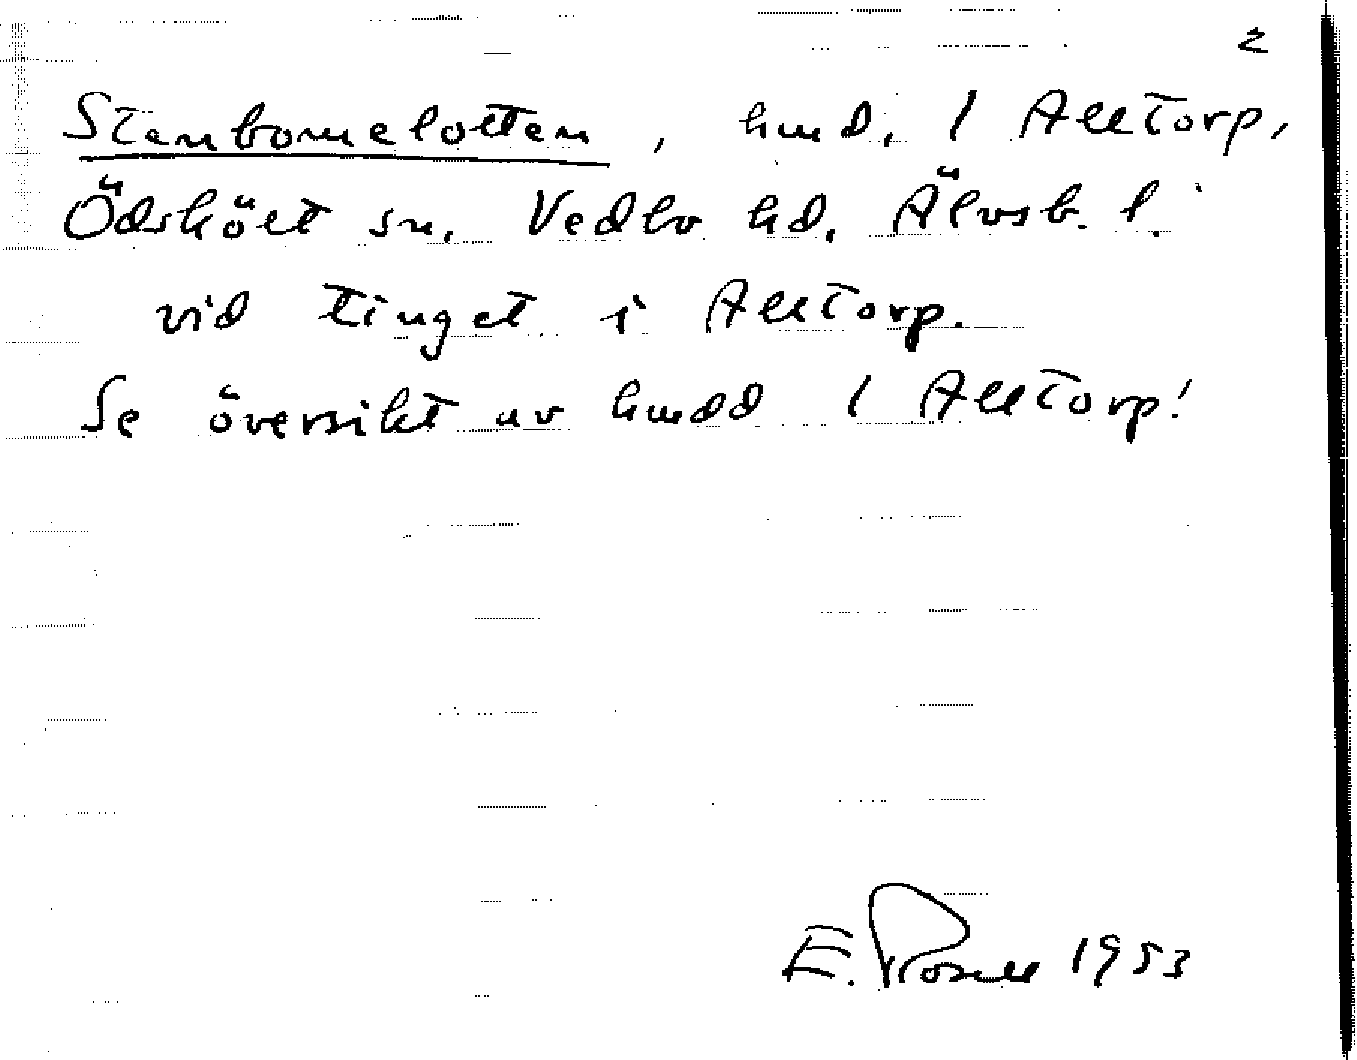 2
Stenbomelotten, hmd. 1 Alltorp,
Ödskölt sn. Vedbo hd. Älvsb. l.
vid tinget i Alltorp.
Se översikt av hmdd 1 Alltorp!
E. Rosell 1953